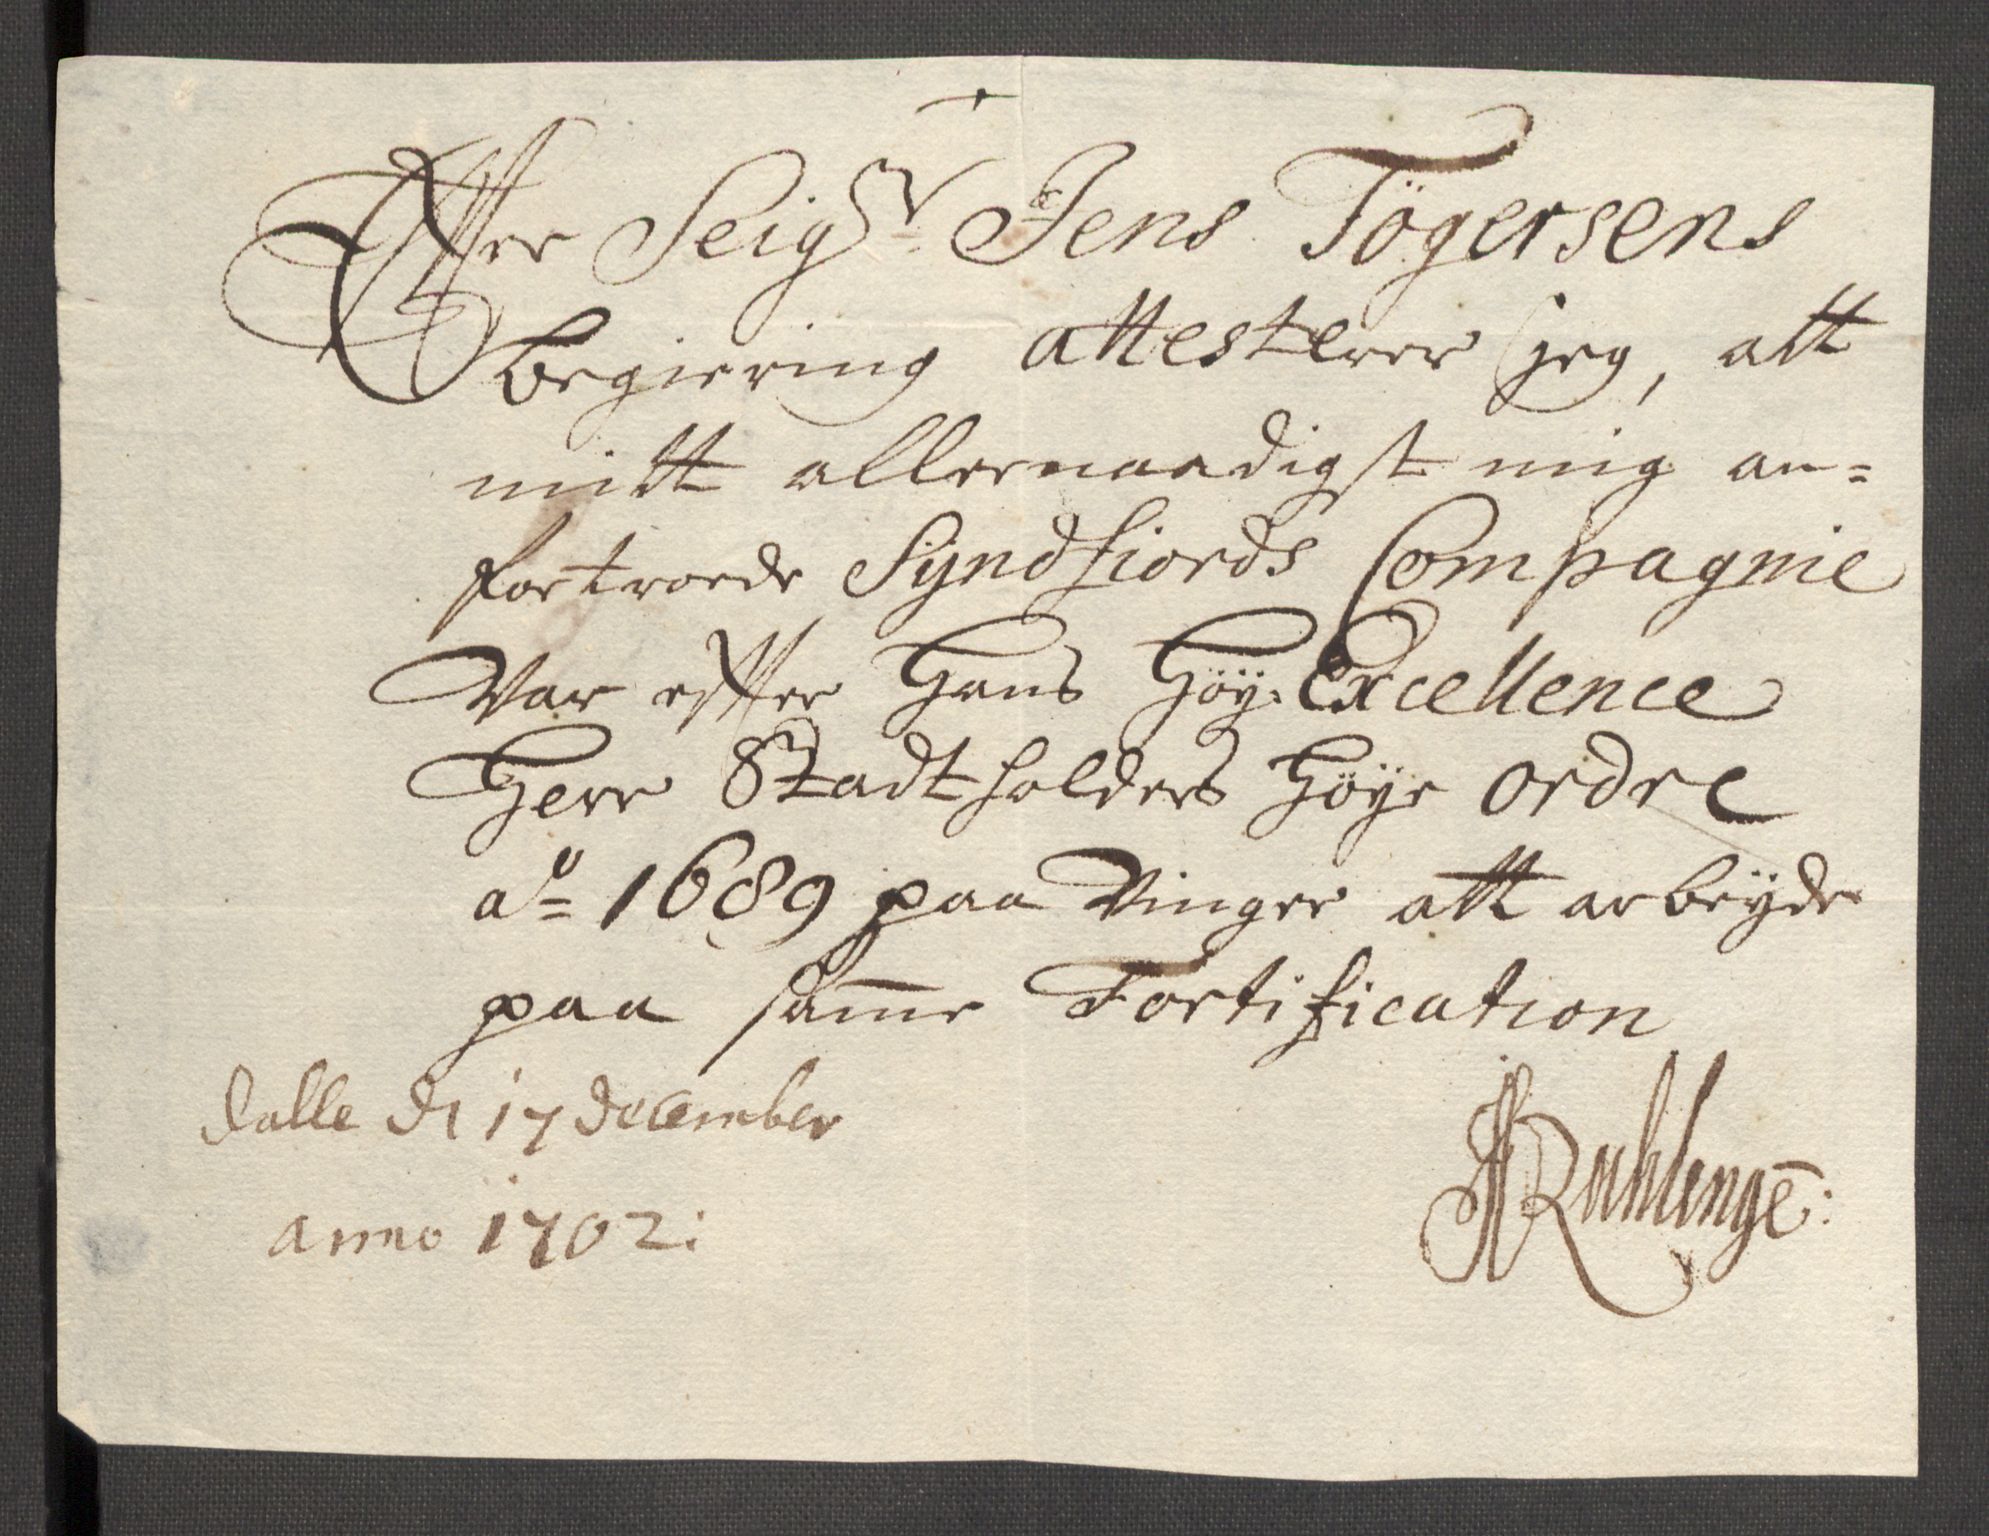 Effter Seigr Jens Tögersens
begiering attesterer jeg, att
mitt allernaadigst mig an=
fortroede Syndfiords Compagnie
War effter Hans Höy Excellence
Herr Stadtholders Höye Ordre
ao= 1689 paa Vinger att arbeyde
paa samme Fortification
Dalle d 17 december
anno 1702:
Ruhlenge: